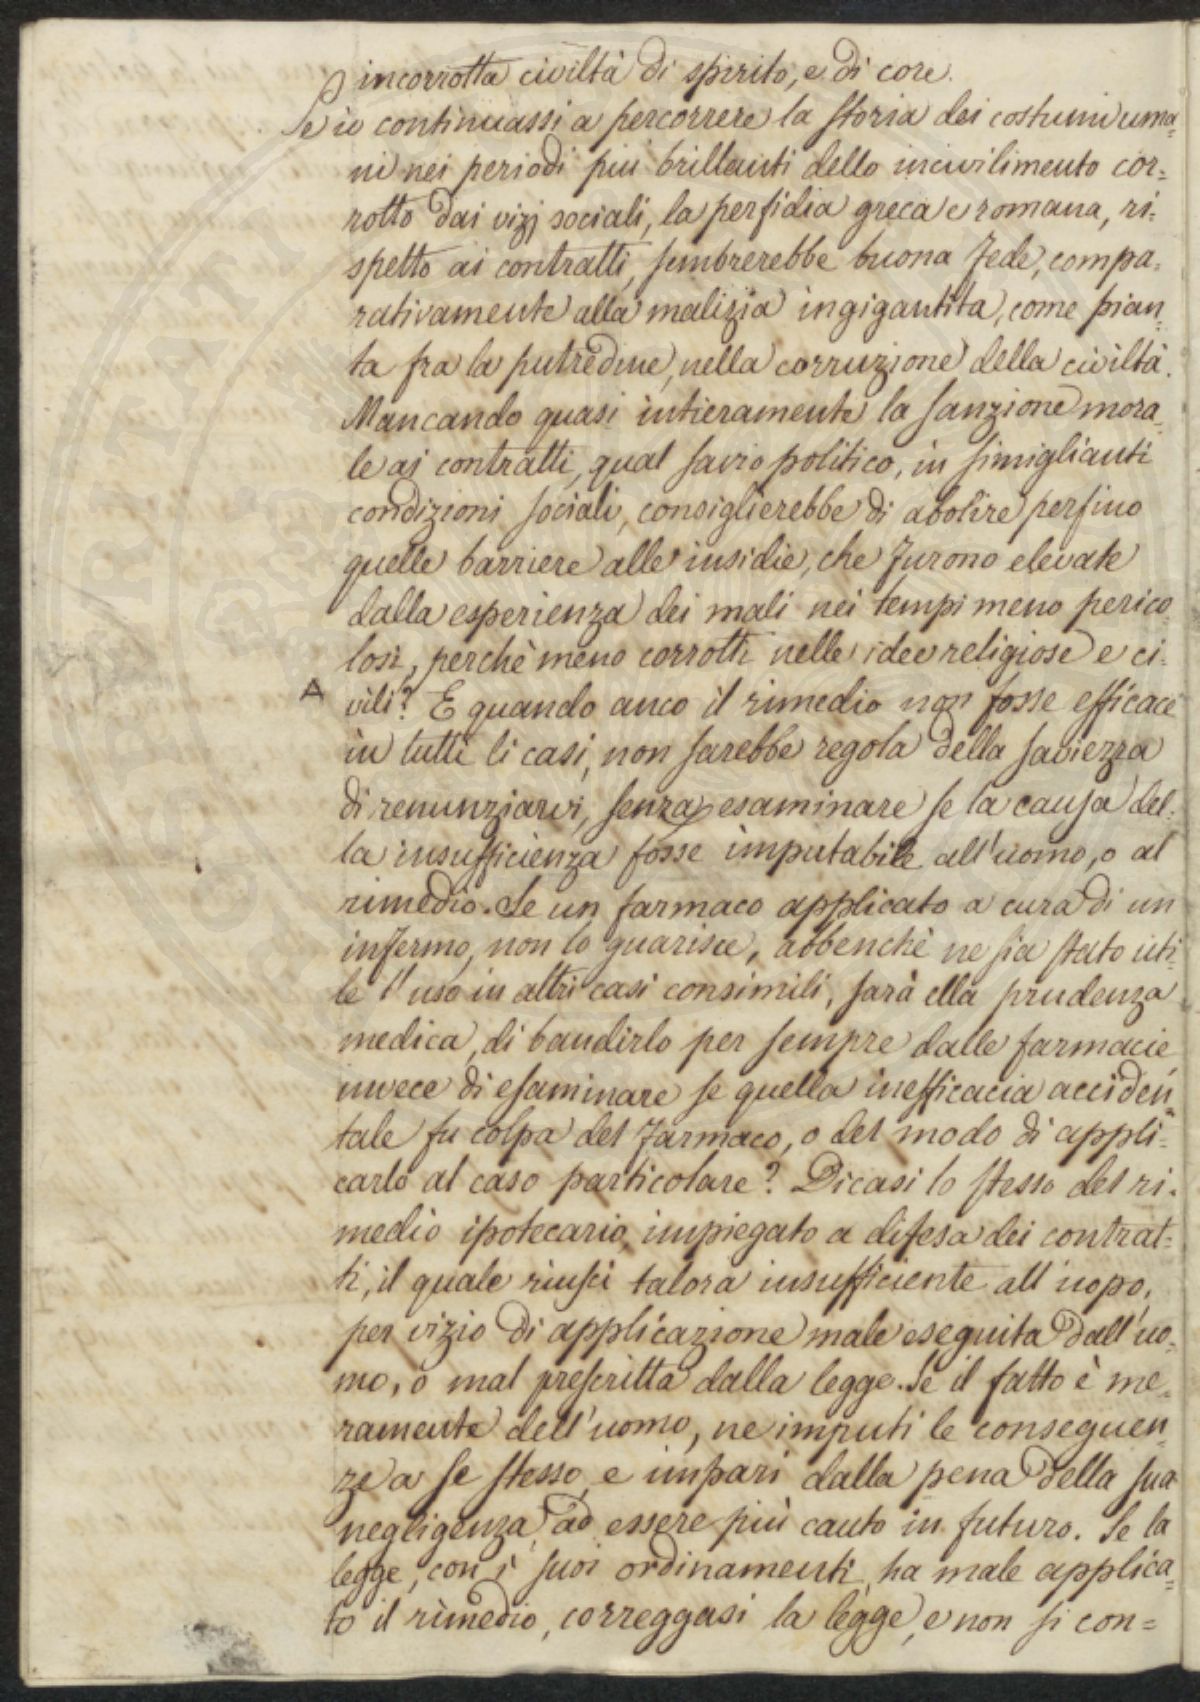 incorrotta civiltà di spirito, e di core.
Se io continuassi a percorrere la storia dei costumi uma=
ni nei periodi più brillanti dello incivilimento cor=
rotto dai vizj sociali, la perfidia greca e romana, ri=
spetto ai contratti, sembrerebbe buona fede, compa=
rativamente alla malizia ingigantita, come pian=
ta fra la putredine, nella corruzione della civiltà.
Mancando quasi intieramente la sanzione mora=
le ai contratti, qual savio politico, in simiglianti
condizioni sociali, consiglierebbe di abolire perfino
quelle barriere alle insidie, che furono elevate
dalla esperienza dei mali nei tempi meno perico
losi, perchè meno corrotti nelle idee religiose e ci=
A vili? E quando anco il rimedio non fosse efficace
in tutti li casi, non sarebbe regola della saviezza
di renunziarvi, senza esaminare se la causa del=
la insufficienza fosse imputabile all'uomo, o al
rimedio. Se un farmaco applicato a cura di un
infermo, non lo guarisce, abbenchè ne sia stato uti=
le l'uso in altri casi consimili, sarà ella prudenza
medica, di bandirlo per sempre dalle farmacie
invece di esaminare se quella inefficacia acciden=
tale fu colpa del farmaco, o del modo di appli=
carlo al caso particolare? Dicasi lo stesso del ri=
medio ipotecario, impiegato a difesa dei contrat=
ti, il quale riuscì talora insufficiente all'uopo,
per vizio di applicazione male eseguita dall'uo=
mo, o mal prescritta dalla legge. Se il fatto è me=
ramente dell'uomo, ne imputi le conseguen=
ze a se stesso, e impari dalla pena della sua
negligenza, ad essere più cauto in futuro. Se la
legge, con i suoi ordinamenti, ha male applica=
to il rimedio, correggasi la legge, e non si con=